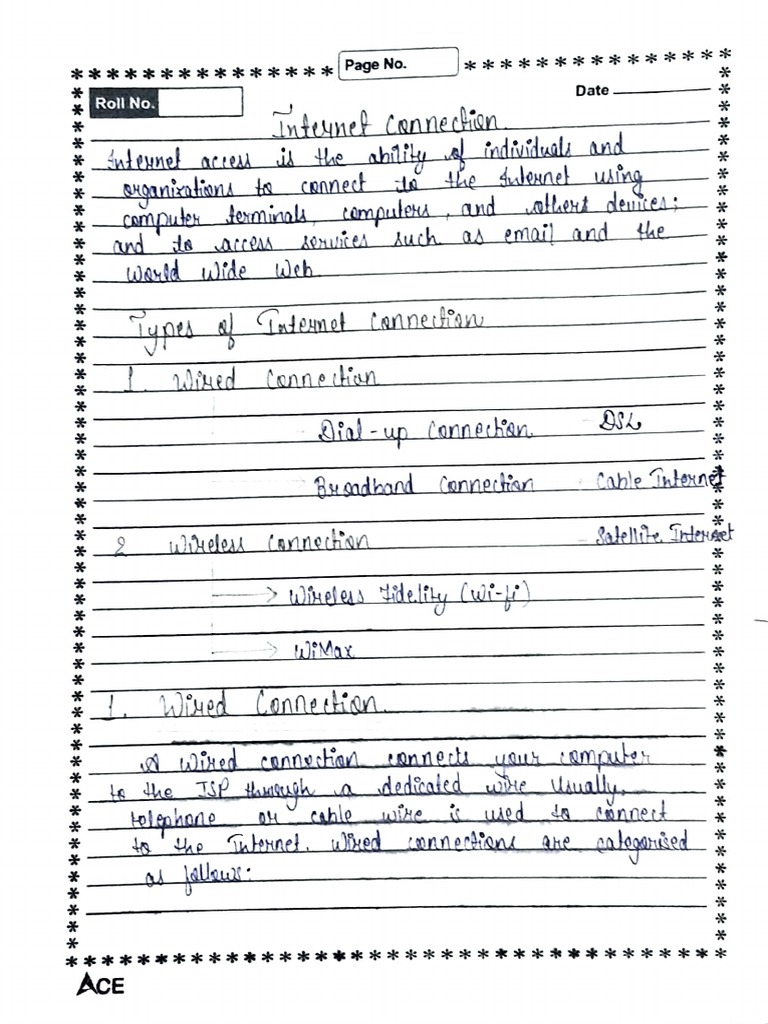 Page No.
Roll No.
Date
Internet Connection
Internet access is the ability of individuals and
organizations to connect to the Internet using
computer terminals, computers, and others devices;
and to access services such as email and the
World Wide Web
Types of Internet Connection
1. Wired Connection
Dial-up Connection - DSL
Broadband Connection - Cable Internet
2 Wireless Connection - Satellite Internet
→ Wireless Fidelity (Wi-fi)
→ WiMax
1. Wired Connection.
A Wired connection connects your computer
to the ISP through a dedicated wire Usually,
telephone or cable wire is used to connect
to the Internet. Wired connections are categorised
as follows:
ACE